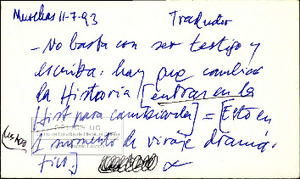 Murelias 11-7-93 Traductor
- No basta con ser testigo y
escriba: hay que cambiar
la Historia [entrar en la
Hist para cambiarla] = [Esto en
1 momento de viraje dramá-
tico]